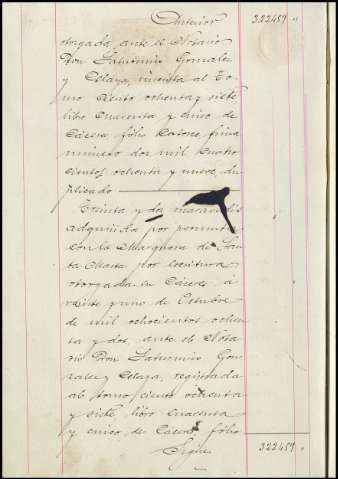 Anterior 322459 "
otorgada, ante el Notario
Don Saturnino Gonzalez
y Celaya, inscrita al To-
mo ciento ochenta y siete
libro cuarenta y cinco de
Cáceres, fólio catorce, finca
número dos mil cuatro
cientos ochenta y nueve du
plicado
Treinta y dos maravedis
adquirida por permuta
con la Marquesa de San
ta Marta por escritura
otorgada en Cáceres á
veinte y uno de Octubre
de mil ochocientos ochen
ta y dos, ante el Nota
rio Don Saturnino Gon
zalez y Celaya, registrada
al tomo ciento ochenta
y siete libro cuarenta
y cinco de Cáceres fólio
Sigue 322459 "